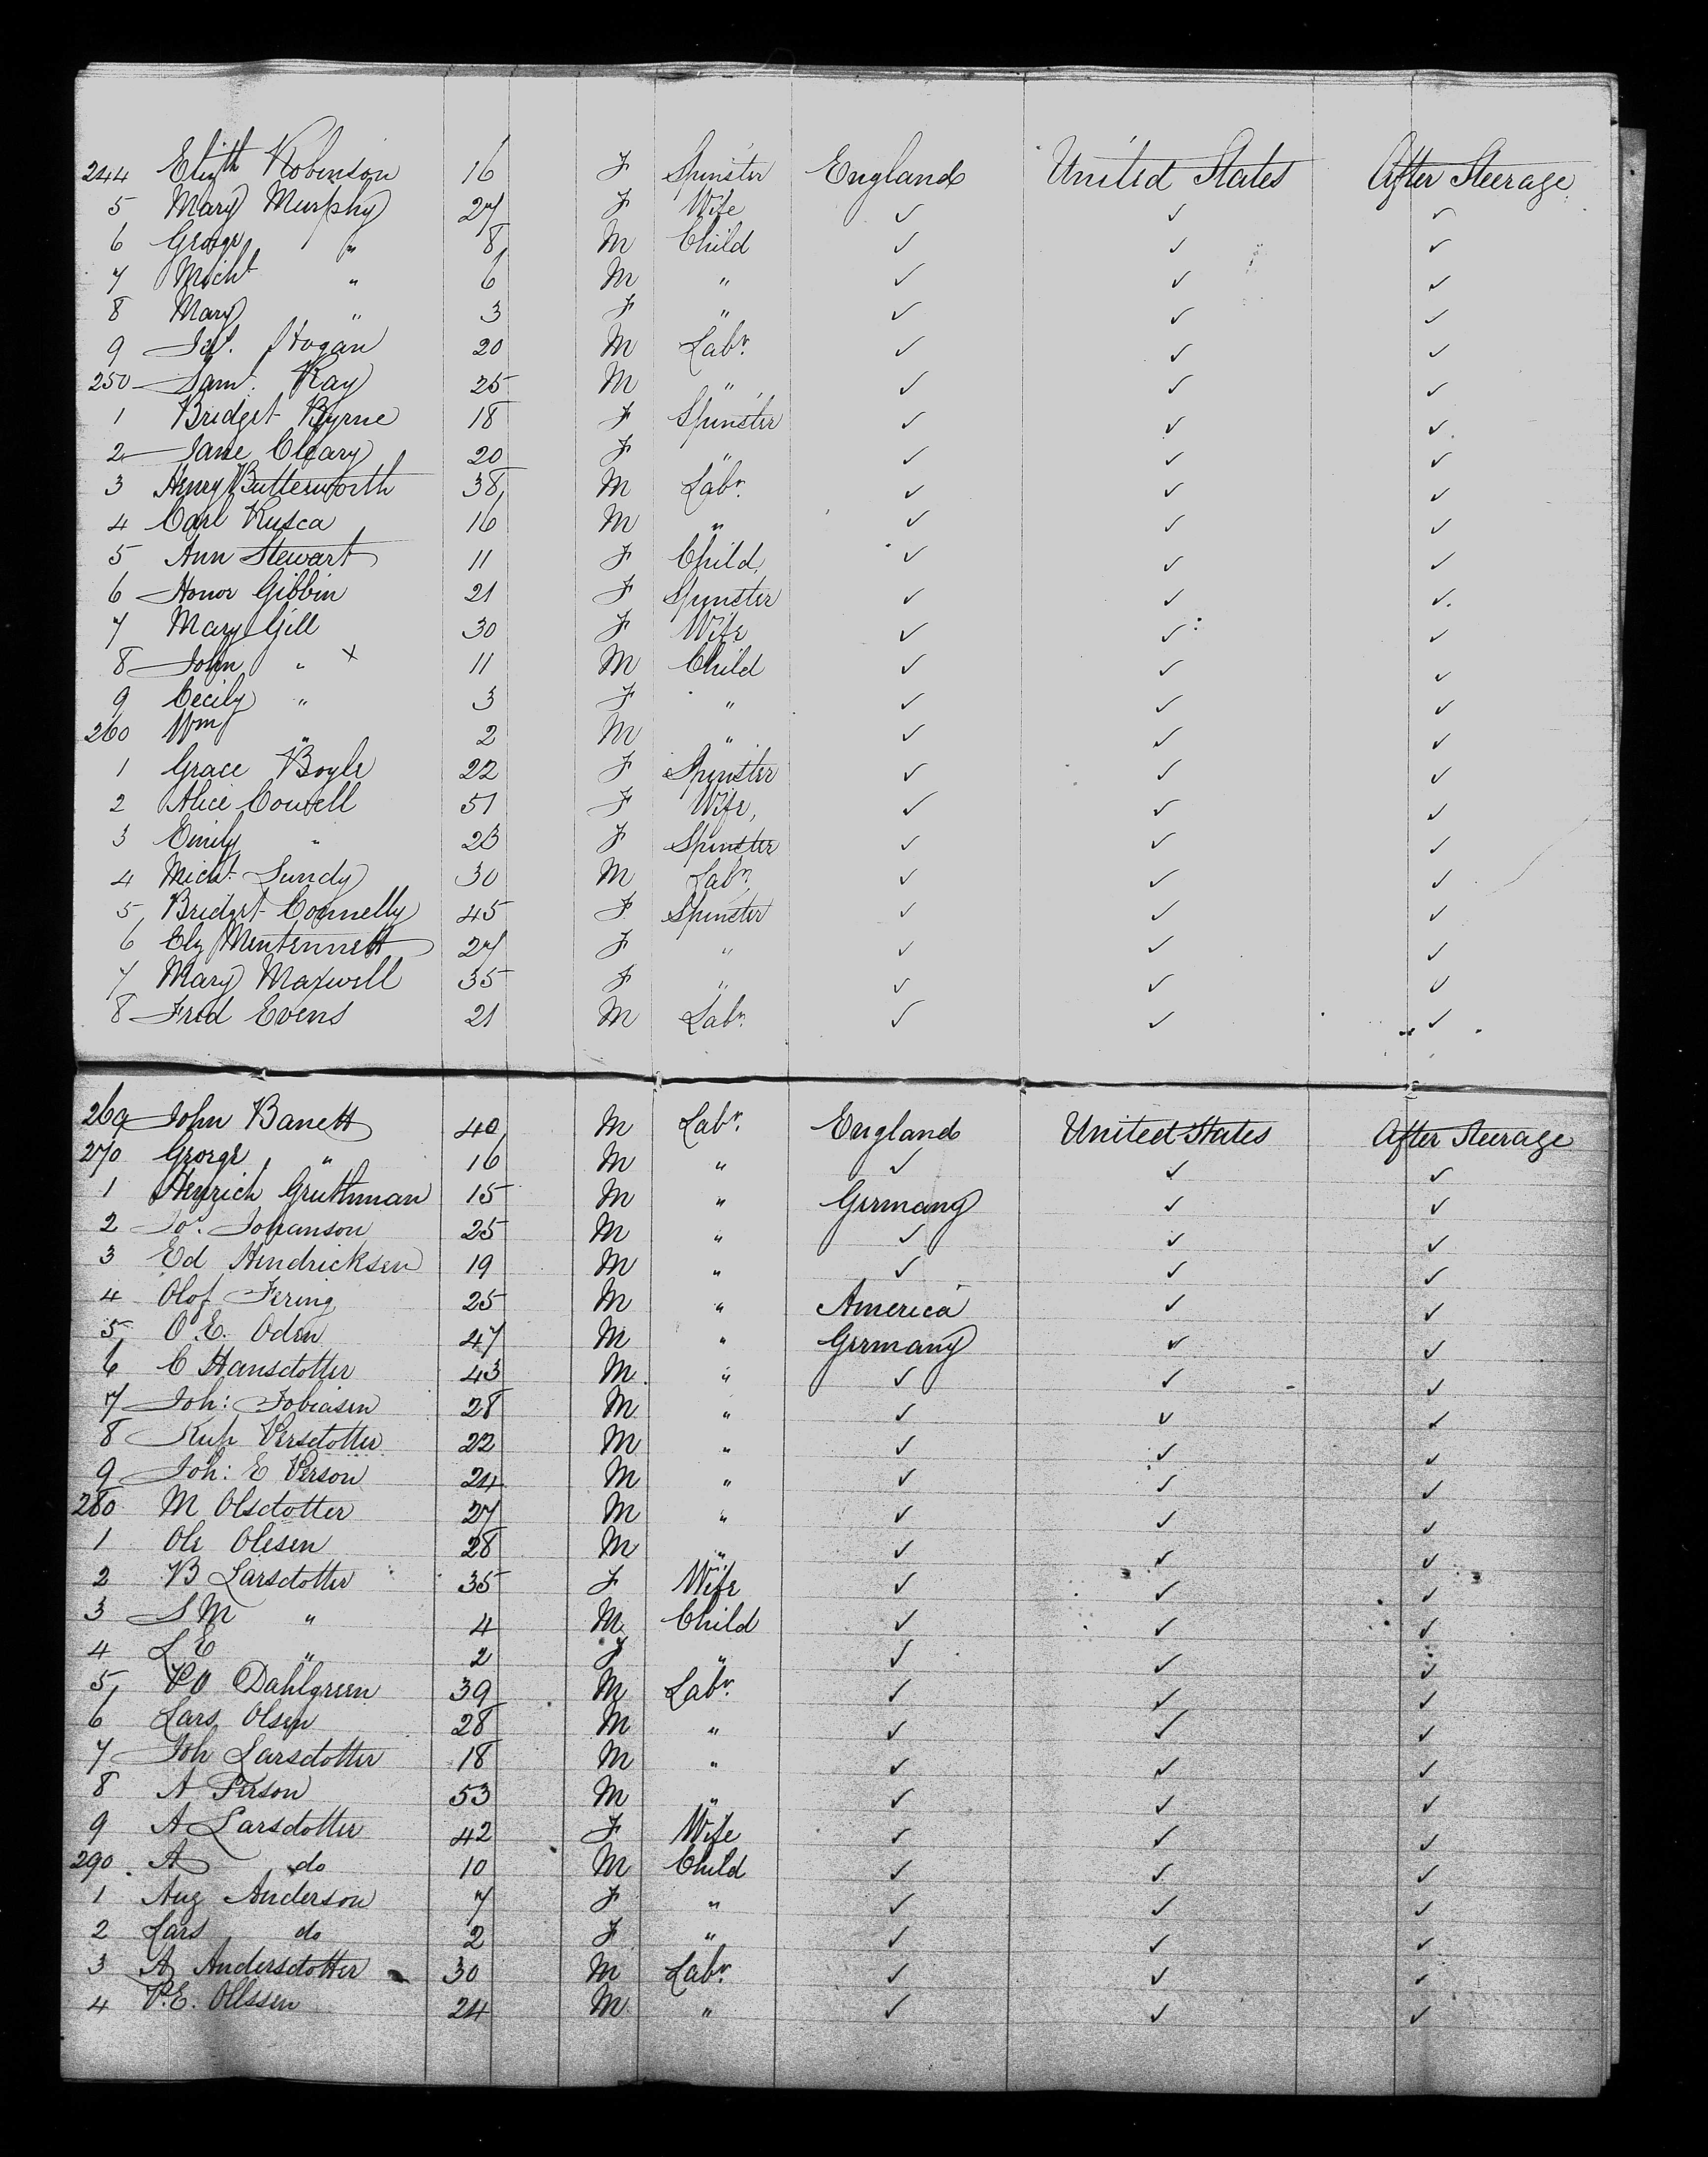 244 Elizth Robinson 16 F Spinster England United States After Steerage
5 Mary Murphy 27 F Wife ✓ ✓ ✓
6 George " 8 M Child ✓ ✓ ✓
7 Michl " 6 M " ✓ ✓ ✓
8 Mary " 3 F " ✓ ✓ ✓
9 Jas. Hogan 20 M Labr. ✓ ✓ ✓
250 Saml. Ray 25 M " ✓ ✓ ✓
1 Bridget Byrne 18 F Spinster ✓ ✓ ✓
2 Jane Cleary 20 F " ✓ ✓ ✓
3 Henry Butterworth 38 M Labr. ✓ ✓ ✓
4 Carl Kusca 16 M " ✓ ✓ ✓
5 Ann Stewart 11 F Child ✓ ✓ ✓
6 Honor Gibbin 21 F Spinster ✓ ✓ ✓
7 Mary Gill 30 F Wife ✓ ✓ ✓
8 John " x 11 M Child ✓ ✓ ✓
9 Cecily " 3 F " ✓ ✓ ✓
260 Wm " 2 M " ✓ ✓ ✓
1 Grace Boyle 22 F Spinster ✓ ✓ ✓
2 Alice Cowell 51 F Wife, ✓ ✓ ✓
3 Emily " 23 F Spinster ✓ ✓ ✓
4 Michl. Lundy 30 M Labr. ✓ ✓ ✓
5 Bridget Connelly 45 F Spinster ✓ ✓ ✓
6 Elz 27 F " ✓ ✓ ✓
7 Mary Maxwell 35 F " ✓ ✓ ✓
8 Fred Evens 21 M Labr. ✓ ✓ ✓
269 John Banett 40 M Labr. England United States After Steerage
270 George " 16 M " ✓ ✓ ✓
1 Heyrich Gruthman 15 M " Germany ✓ ✓
2 Jo. Johanson 25 M " ✓ ✓ ✓
3 Ed Hendricksen 19 M " ✓ ✓ ✓
4 Olof Fering 25 M " America ✓ ✓
5 O. E. Oden 47 M " Germany ✓ ✓
6 C Hansdotter 43 M " ✓ ✓ ✓
7 Joh: Tobiasen 28 M " ✓ ✓ ✓
8 Persdotter 22 M " ✓ ✓ ✓
9 Joh: E Person 24 M " ✓ ✓ ✓
280 M Olsdotter 27 M " ✓ ✓ ✓
1 Ole Olesen 28 M " ✓ ✓ ✓
2 B Larsdotter 35 F Wife ✓ ✓ ✓
3 S M " 4 M Child ✓ ✓ ✓
4 L E " 2 F " ✓ ✓ ✓
5 P O Dahlgreen 39 M Labr. ✓ ✓ ✓
6 Lars Olsen 28 M " ✓ ✓ ✓
7 Joh Larsdotter 18 M " ✓ ✓ ✓
8 A Person 53 M " ✓ ✓ ✓
9 A Larsdotter 42 F Wife ✓ ✓ ✓
290 A do 10 M Child ✓ ✓ ✓
1 Aug Anderson 7 F " ✓ ✓ ✓
2 Lars do 2 F " ✓ ✓ ✓
3 A Andersdotter 30 M Labr. ✓ ✓ ✓
4 P. E. Ollssen 24 M " ✓ ✓ ✓